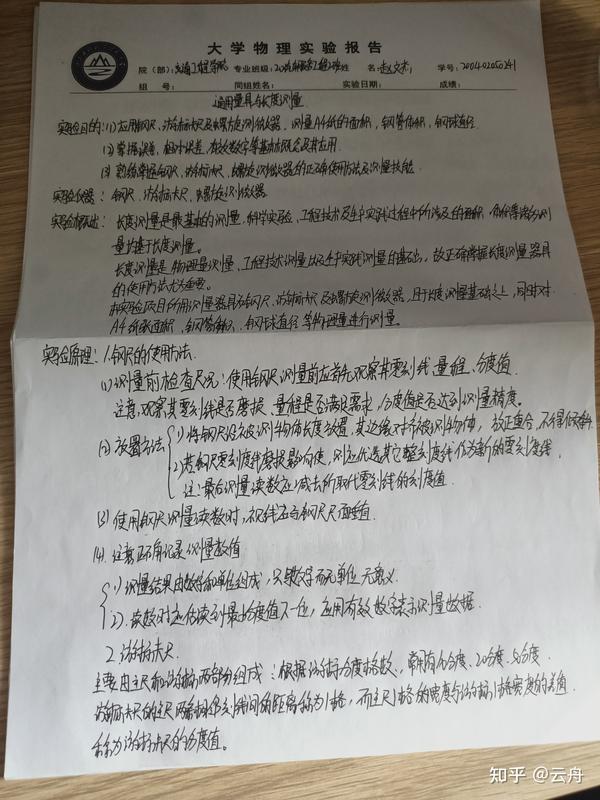 大学物理实验报告
院（部）：交通工程学院 专业班级： 姓名： 学号：200402050241
组 号： 同组姓名： 实验日期： 成绩：
通用量具与长度测量
实验目的：(1) 应用钢尺、游标卡尺及螺旋测微器，测量A4纸的面积，钢管体积，钢球直径
(2) 掌握误差，相对误差，有效数字等基本概念及其应用
(3) 熟练掌握钢尺，游标卡尺，螺旋测微器的正确使用方法及测量技能
实验仪器：钢尺、游标卡尺、螺旋测微器
实验概述：长度测量是最基本的测量，科学实验、工程技术及生产实践过程中所涉及的面积，体积等诸多测
量均基于长度测量。
长度测量是物理量测量、工程技术测量以及生产实践测量的基础，故正确掌握长度测量器具
的使用方法尤为重要。
本实验项目所用测量器具为钢尺、游标卡尺及螺旋测微器，且于长度测量基础之上，同时对
A4纸张面积、钢管体积、钢球直径等物理量进行测量。
实验原理：1.钢尺的使用方法.
(1) 测量前检查尺况：使用钢尺测量前应首先观察其零刻线、量程、分度值.
注意：观察其零刻线是否磨损、量程是否满足需求，分度值是否达到测量精度。
(2) 放置方法 1) 将钢尺沿被测物体长度放置，其边缘对齐被测物体，故正重合，不得倾斜
2) 若钢尺零刻度线磨损影响使，则应优选其它整刻度线作为新的零刻度线
注：最后测量读数应减去所取代零刻线的刻度值.
(3) 使用钢尺测量读数时，视线应与钢尺尺面垂直.
(4) 注意正确记录测量数值
1) 测量结果由数字和单位组成，只有数字而无单位无意义.
2). 读数时应估读到最小分度值下一位，应用有效数字表示测量数据.
2. 游标卡尺.
主要由主尺和游标两部分组成；根据游标分度格数，常用有10分度、20分度、50分度.
游标卡尺的主尺两条相邻刻线间的距离称为1格，而主尺1格的宽度与游标1格宽度的差值
称为游标卡尺的分度值。
知乎 @云舟